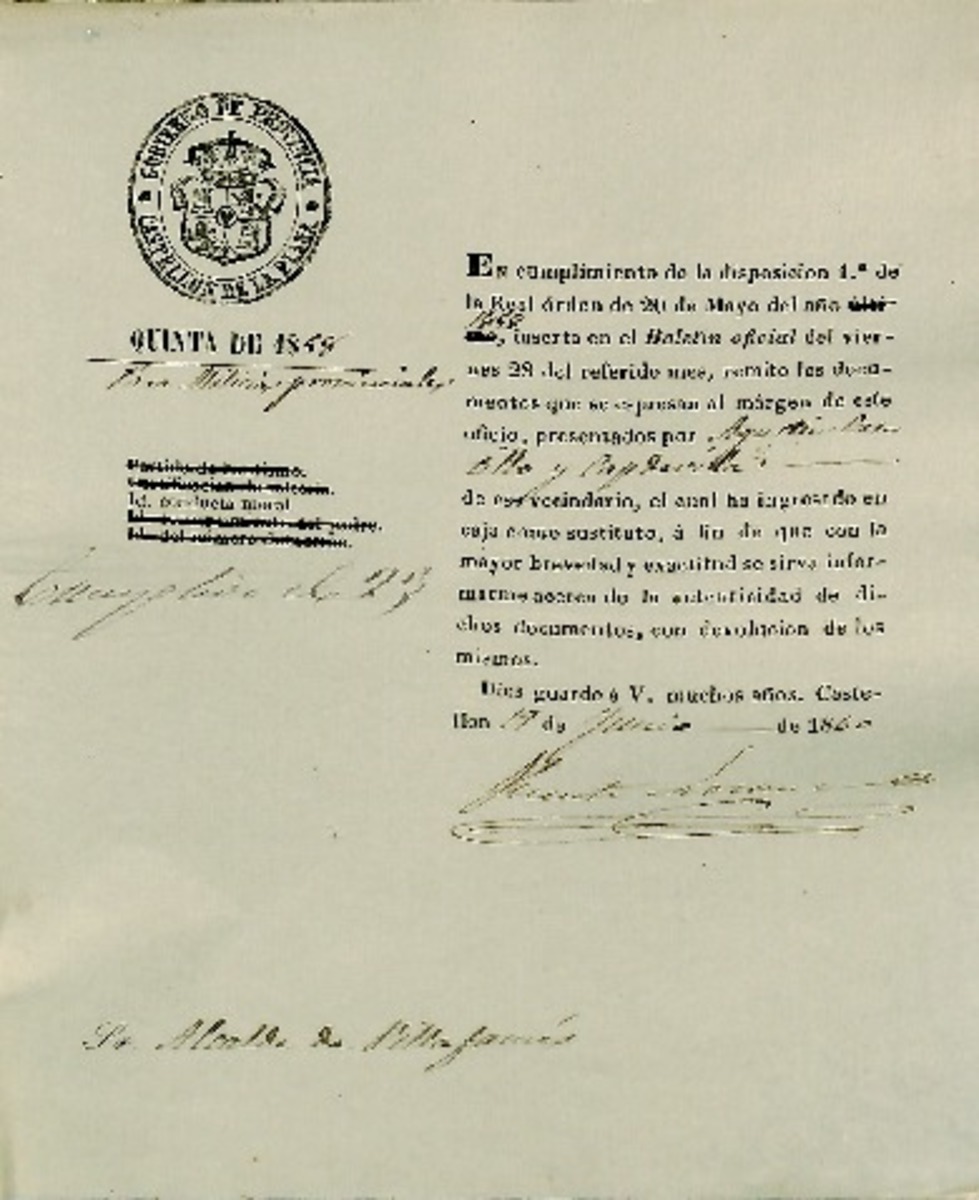 GOBIERNO DE PROVINCIA
CASTELLON DE LA PLANA
QUINTA DE 1859
Para Milicias provinciales
Partida de bautismo.
Certificacion de soltería.
Id. conducta moral
Id. del padre.
Id. del número
Cumplido el 23
EN cumplimiento de la disposicion 1.ª de
la Real órden de 20 de Mayo del año últi-
mo, 1858 inserta en el Boletin oficial del vier-
nes 28 del referido mes, remito los docu-
mentos que se espresan al márgen de este
oficio, presentados por Agustin
y
de ese vecindario, el cual ha ingresado en
caja como sustituto, á fin de que con la
mayor brevedad y exactitud se sirva infor-
marme acerca de la autenticidad de di-
chos documentos, con devolucion de los
mismos.
Dios guarde á V. muchos años. Caste-
llon de Junio de 1860
Vicente
Sr. Alcalde de Villafamés